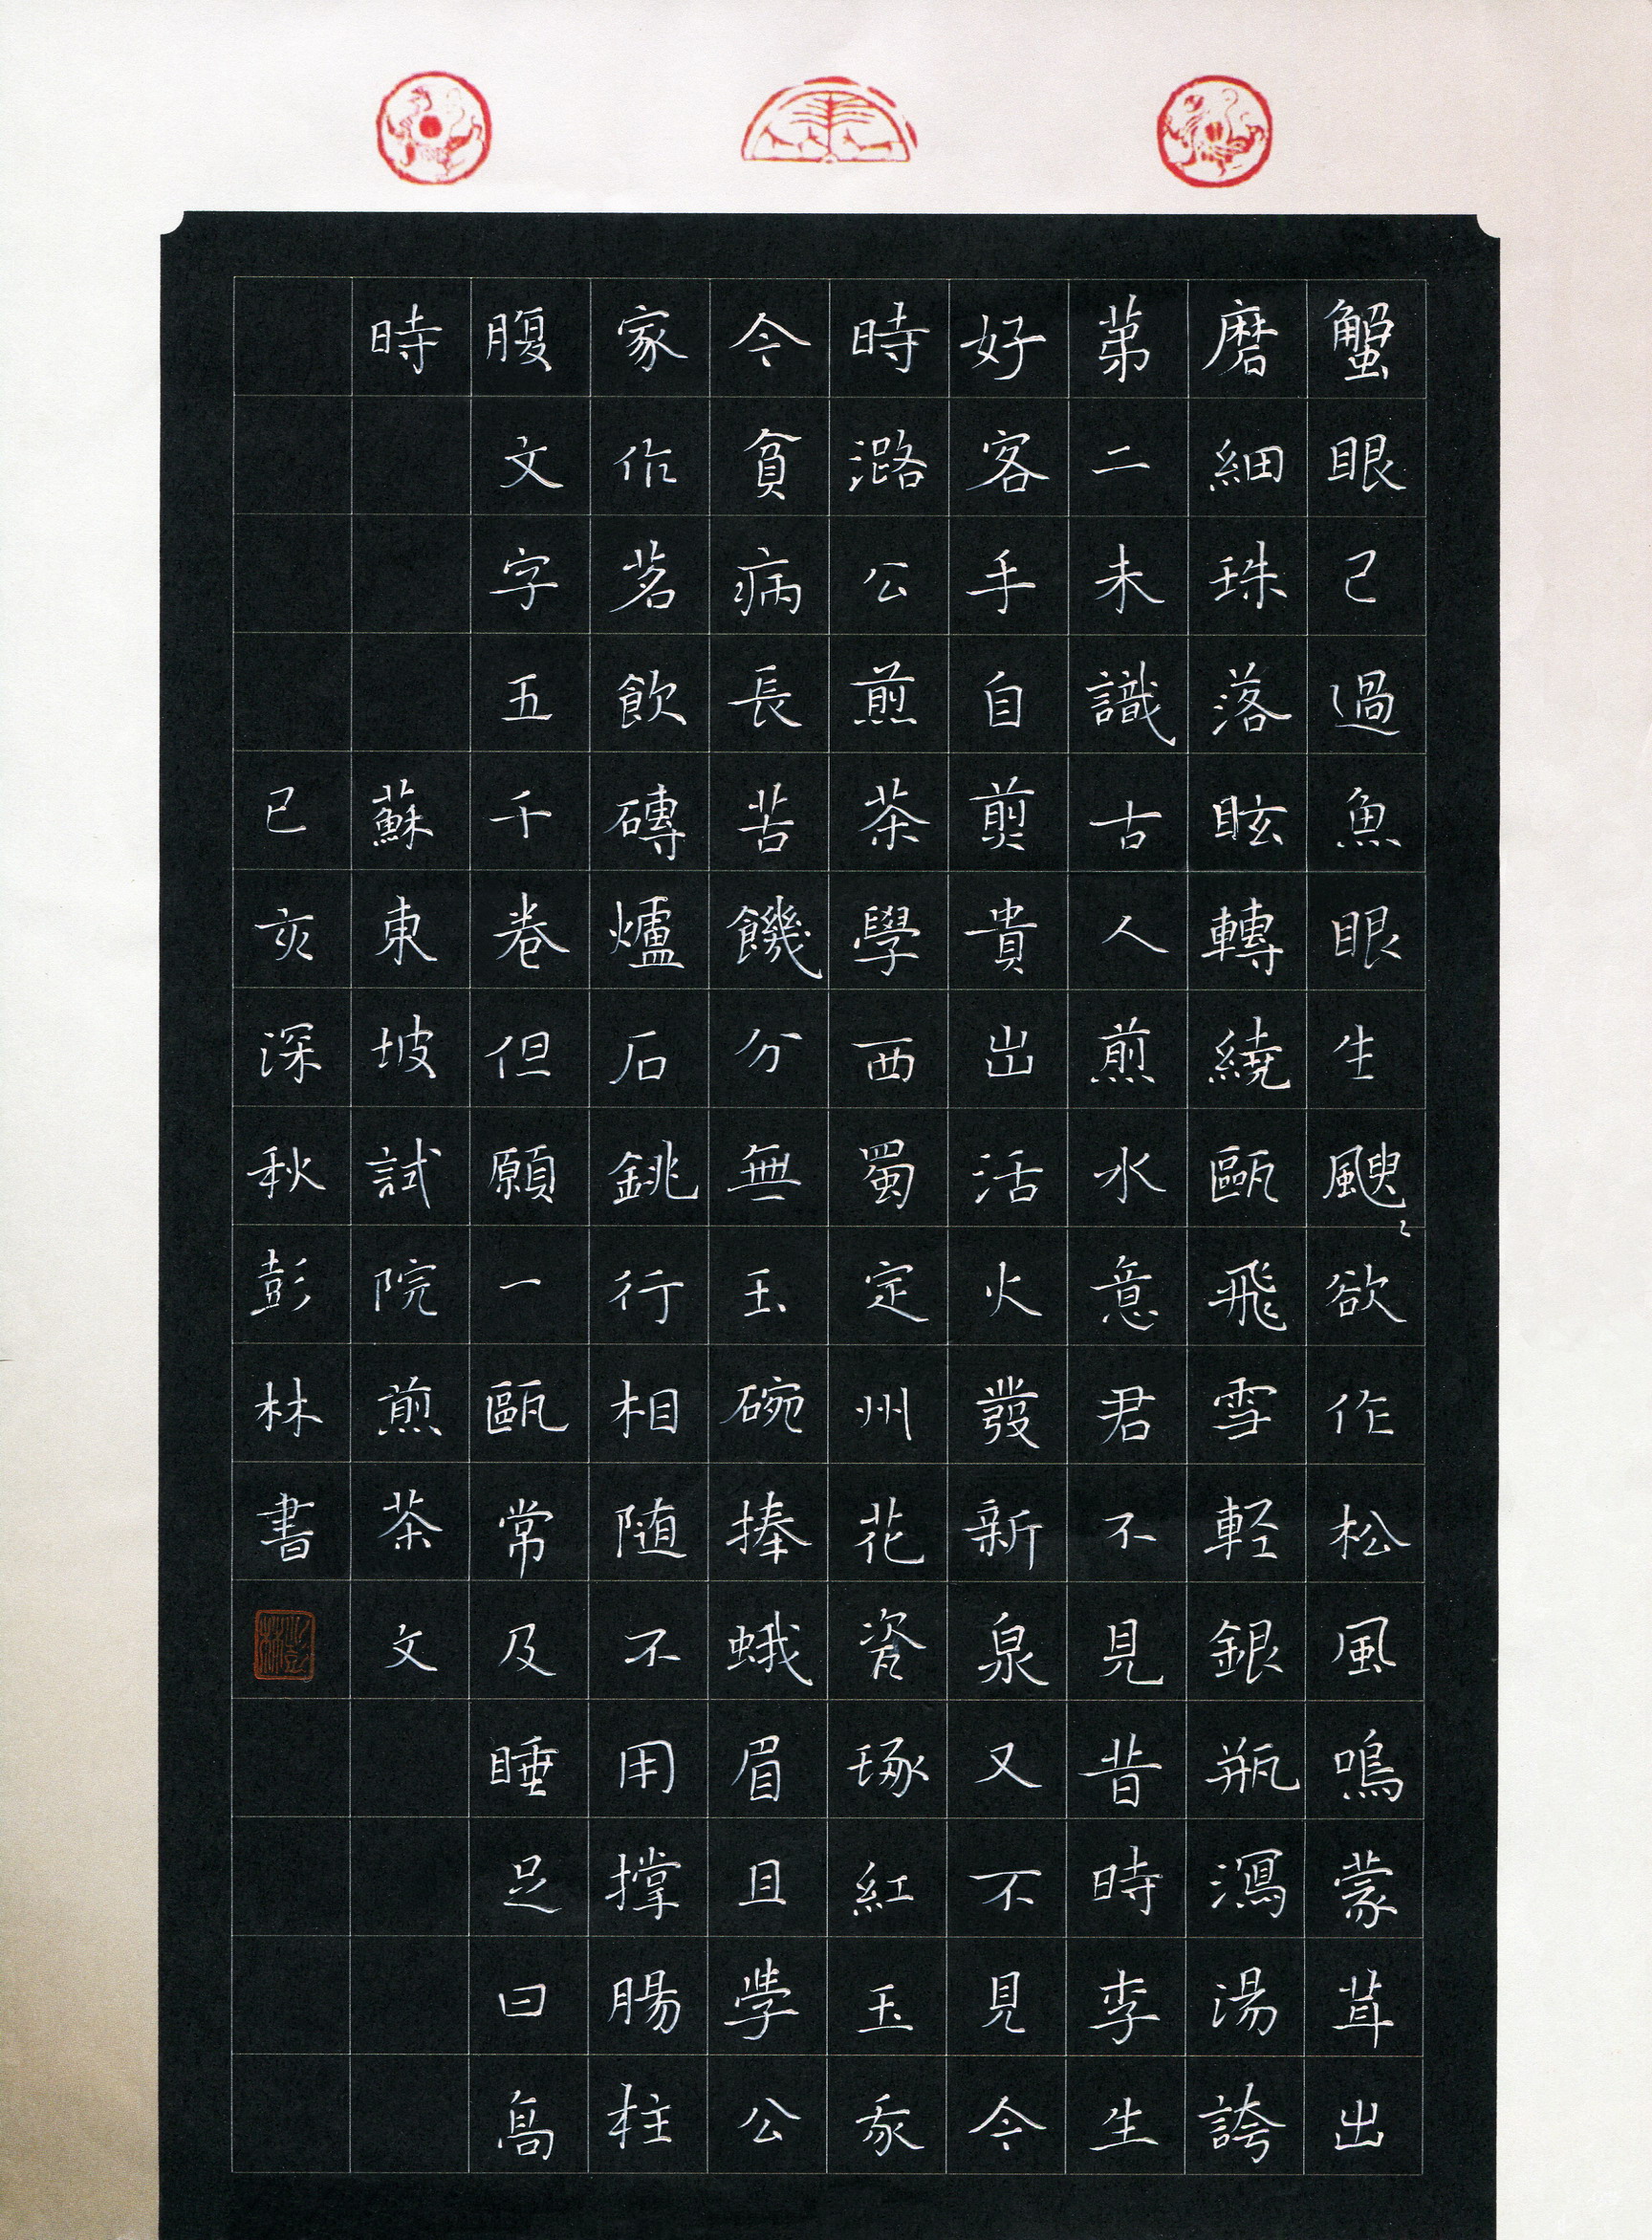 蟹眼已過魚眼生颼〻欲作松風鳴蒙茸出
磨細珠落眩轉繞甌飛雪輕銀瓶瀉湯誇
苐二未識古人煎水意君不見昔時李生
好客手自煎貴出活火發新泉又不見今
時潞公煎茶學西蜀定州花瓷琢紅玉我
今貧病長苦饑分無玉碗捧蛾眉且學公
家作茗飲磚爐石銚行相随不用撑腸柱
腹文字五千卷但願一甌常及睡足日高
時　　　蘇東坡試院煎茶文
己亥深秋彭林書
彭林